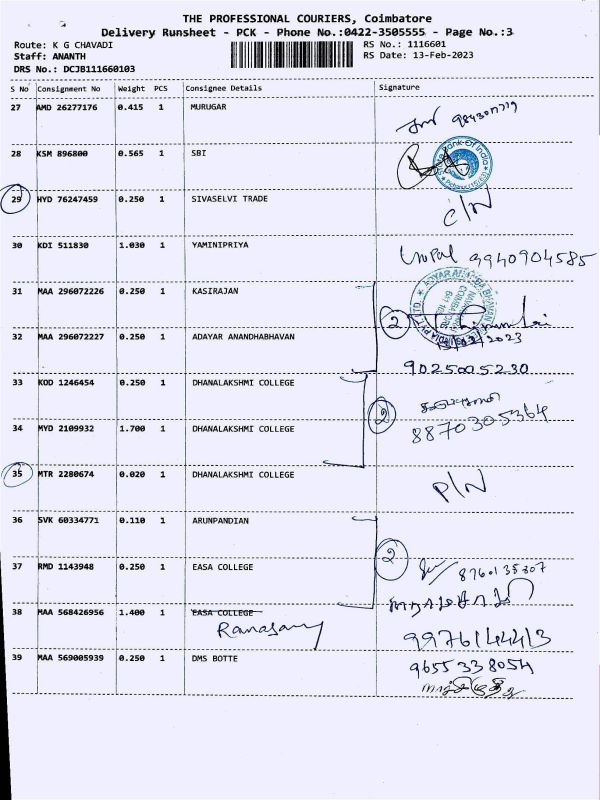 THE PROFESSIONAL COURIERS, Coimbatore
Delivery Runsheet - PCK - Phone No.:0422-3505555 - Page No.:3
Route: K G CHAVADI RS No.: 1116601
Staff: ANANTH RS Date: 13-Feb-2023
DRS No.: DCJB111660103
S No Consignment No Weight PCS Consignee Details Signature
27 AMD 26277176 0.415 1 MURUGAR
28 KSM 896800 0.565 1 SBI
29 HYD 76247459 0.250 1 SIVASELVI TRADE C/N
30 KDI 511830 1.030 1 YAMINIPRIYA 9940904585
31 MAA 296072226 0.250 1 KASIRAJAN
2
32 MAA 296072227 0.250 1 ADAYAR ANANDHABHAVAN
9025005230
33 KOD 1246454 0.250 1 DHANALAKSHMI COLLEGE
2
34 MYD 2109932 1.700 1 DHANALAKSHMI COLLEGE 8870305364
35 MTR 2280674 0.020 1 DHANALAKSHMI COLLEGE P/N
36 SVK 60334771 0.110 1 ARUNPANDIAN
2
37 RMD 1143948 0.250 1 EASA COLLEGE 8760135807
38 MAA 568426956 1.400 1 EASA COLLEGE
9976144413
39 MAA 569005939 0.250 1 DMS BOTTE 9655338054